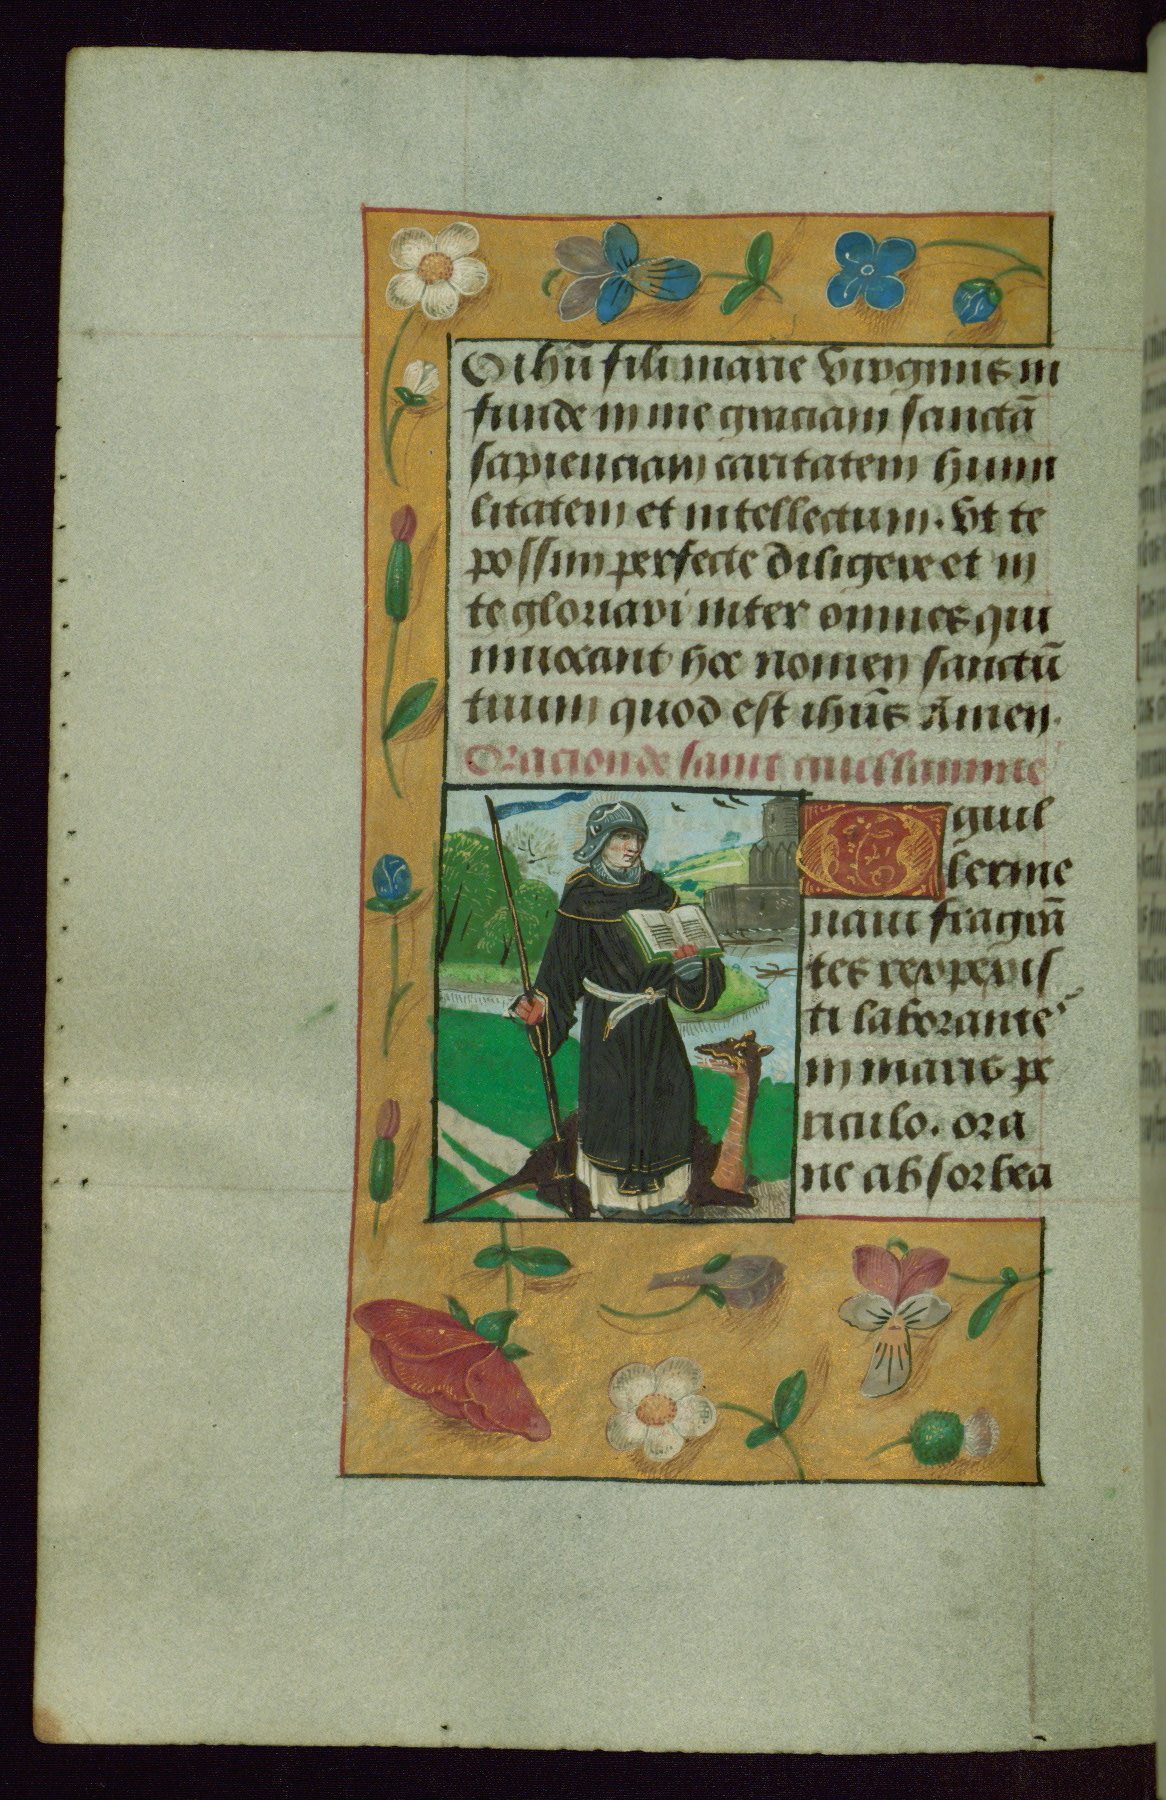 O ihū fili marie virginis in
funde in me graciam sanctā
sapienciam caritatem humi
litatem et intellectum. Vt te
possim perfecte diligere et in
te gloriari inter omnes qui
inuocant hoc nomen sanctū
tuum quod est ihūs Amen.
Oracion de saint guellamme
O guil
lerme
naui fragrā
tes reperis
ti laborante
in maris pe
riculo. ora
ne absorbea